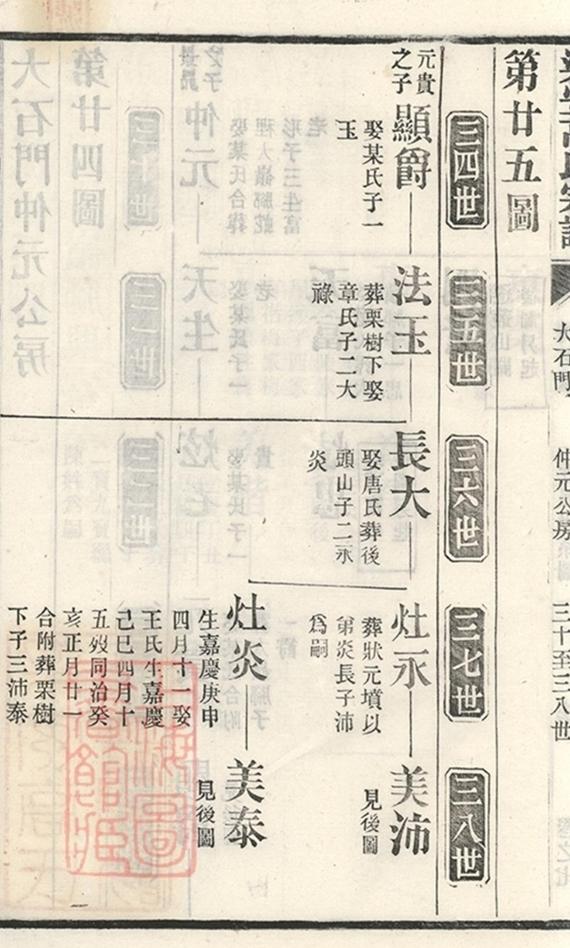 大石門
仲元公房
三十至三八世
第廿五圖
三四世
三五世
三六世
三七世
三八世
元貴
之子
顯爵
娶某氏子一
玉
法玉
葬栗樹下娶
章氏子二大
祿
長大
娶唐氏葬後
頭山子二永
炎
灶永
葬狀元墳以
弟炎長子沛
爲嗣
美沛
見後圖
灶炎
生嘉慶庚申
四月十一娶
王氏生嘉慶
己巳四月十
五歿同治癸
亥正月廿一
合附葬栗樹
下子三沛泰
美泰
見後圖